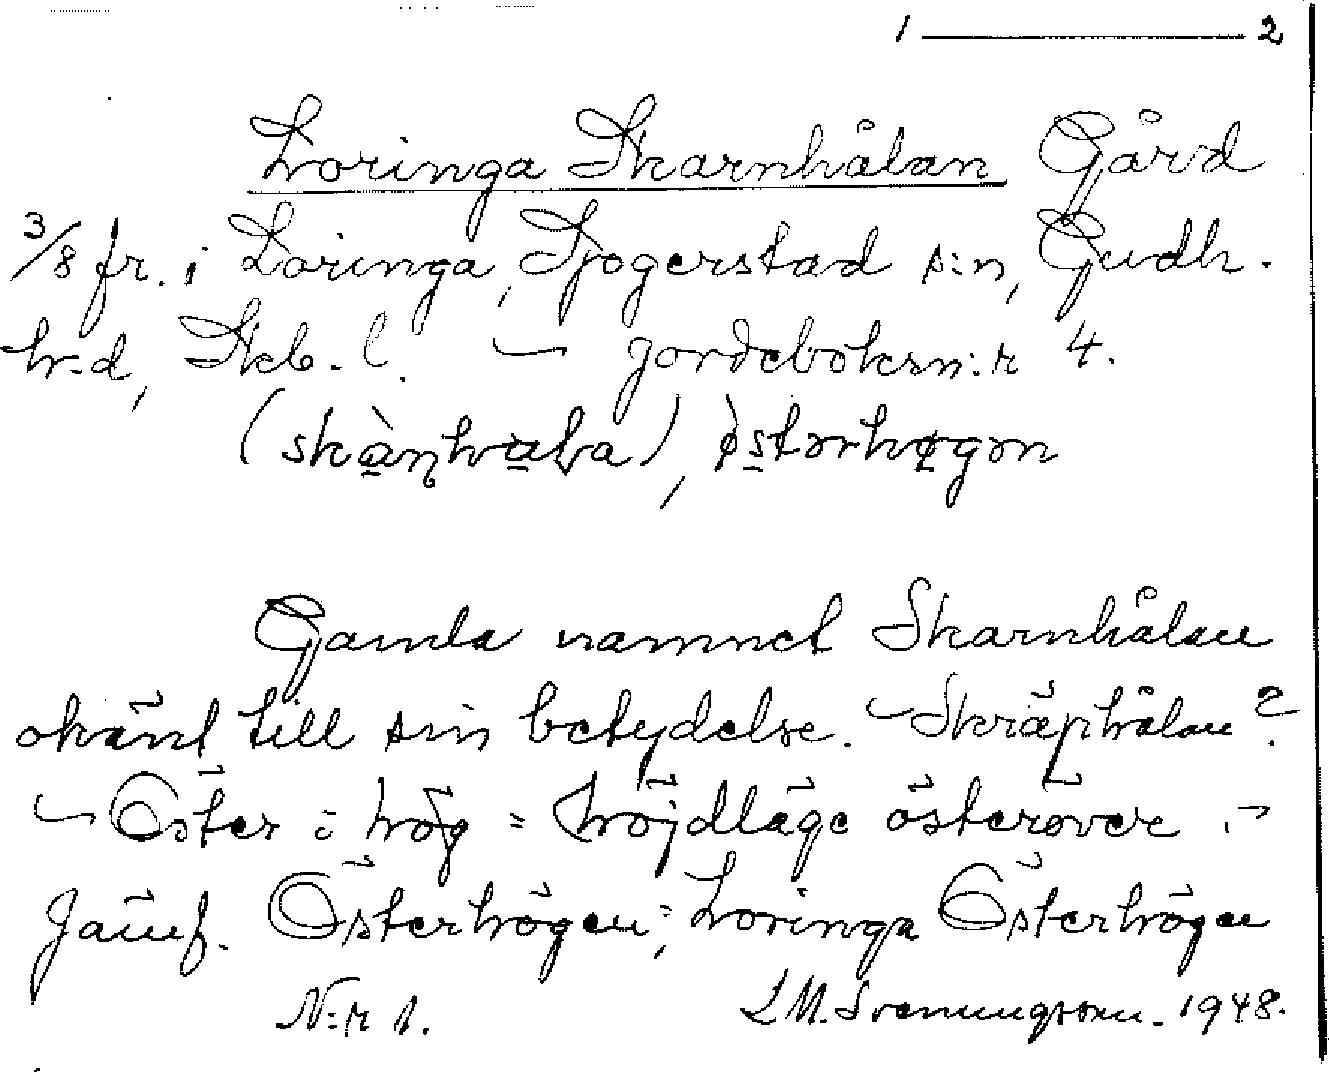 1 — 2
Loringa Skarnhålan Gård
3/8 fr. i Loringa, Sjogerstad s:n, Gudh.
h:d, Skb. l. — Jordeboksn:r 4.
(skàn̥hɑla), ø̀stərhøgən
Gamla namnet Skarnhålan
okänt till sin betydelse. – Skräphålan?
– Öster i hög = höjdläge österöver. –
Jämf. Österhögen; Loringa Österhögen
N:r 1. L M. Svenungsson. 1948.